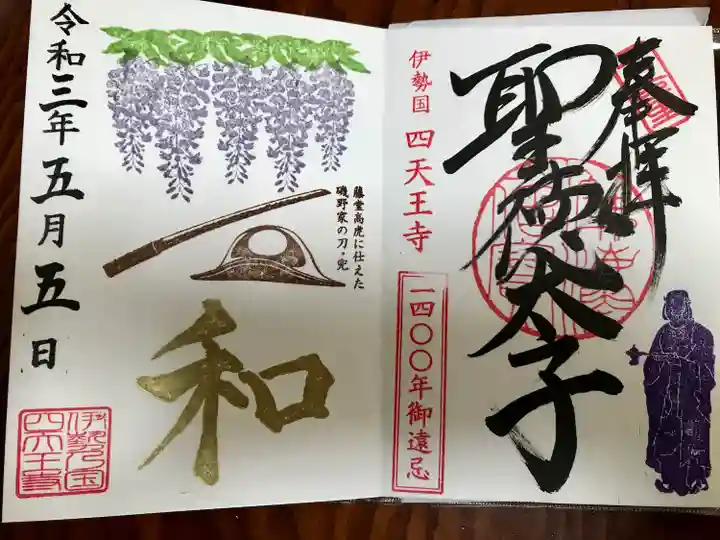 奉拝
聖徳太子
伊勢国 四天王寺
一四〇〇年御遠忌
藤堂高虎に仕えた
磯野家の刀・兜
和
令和三年五月五日
伊勢国
四天王寺